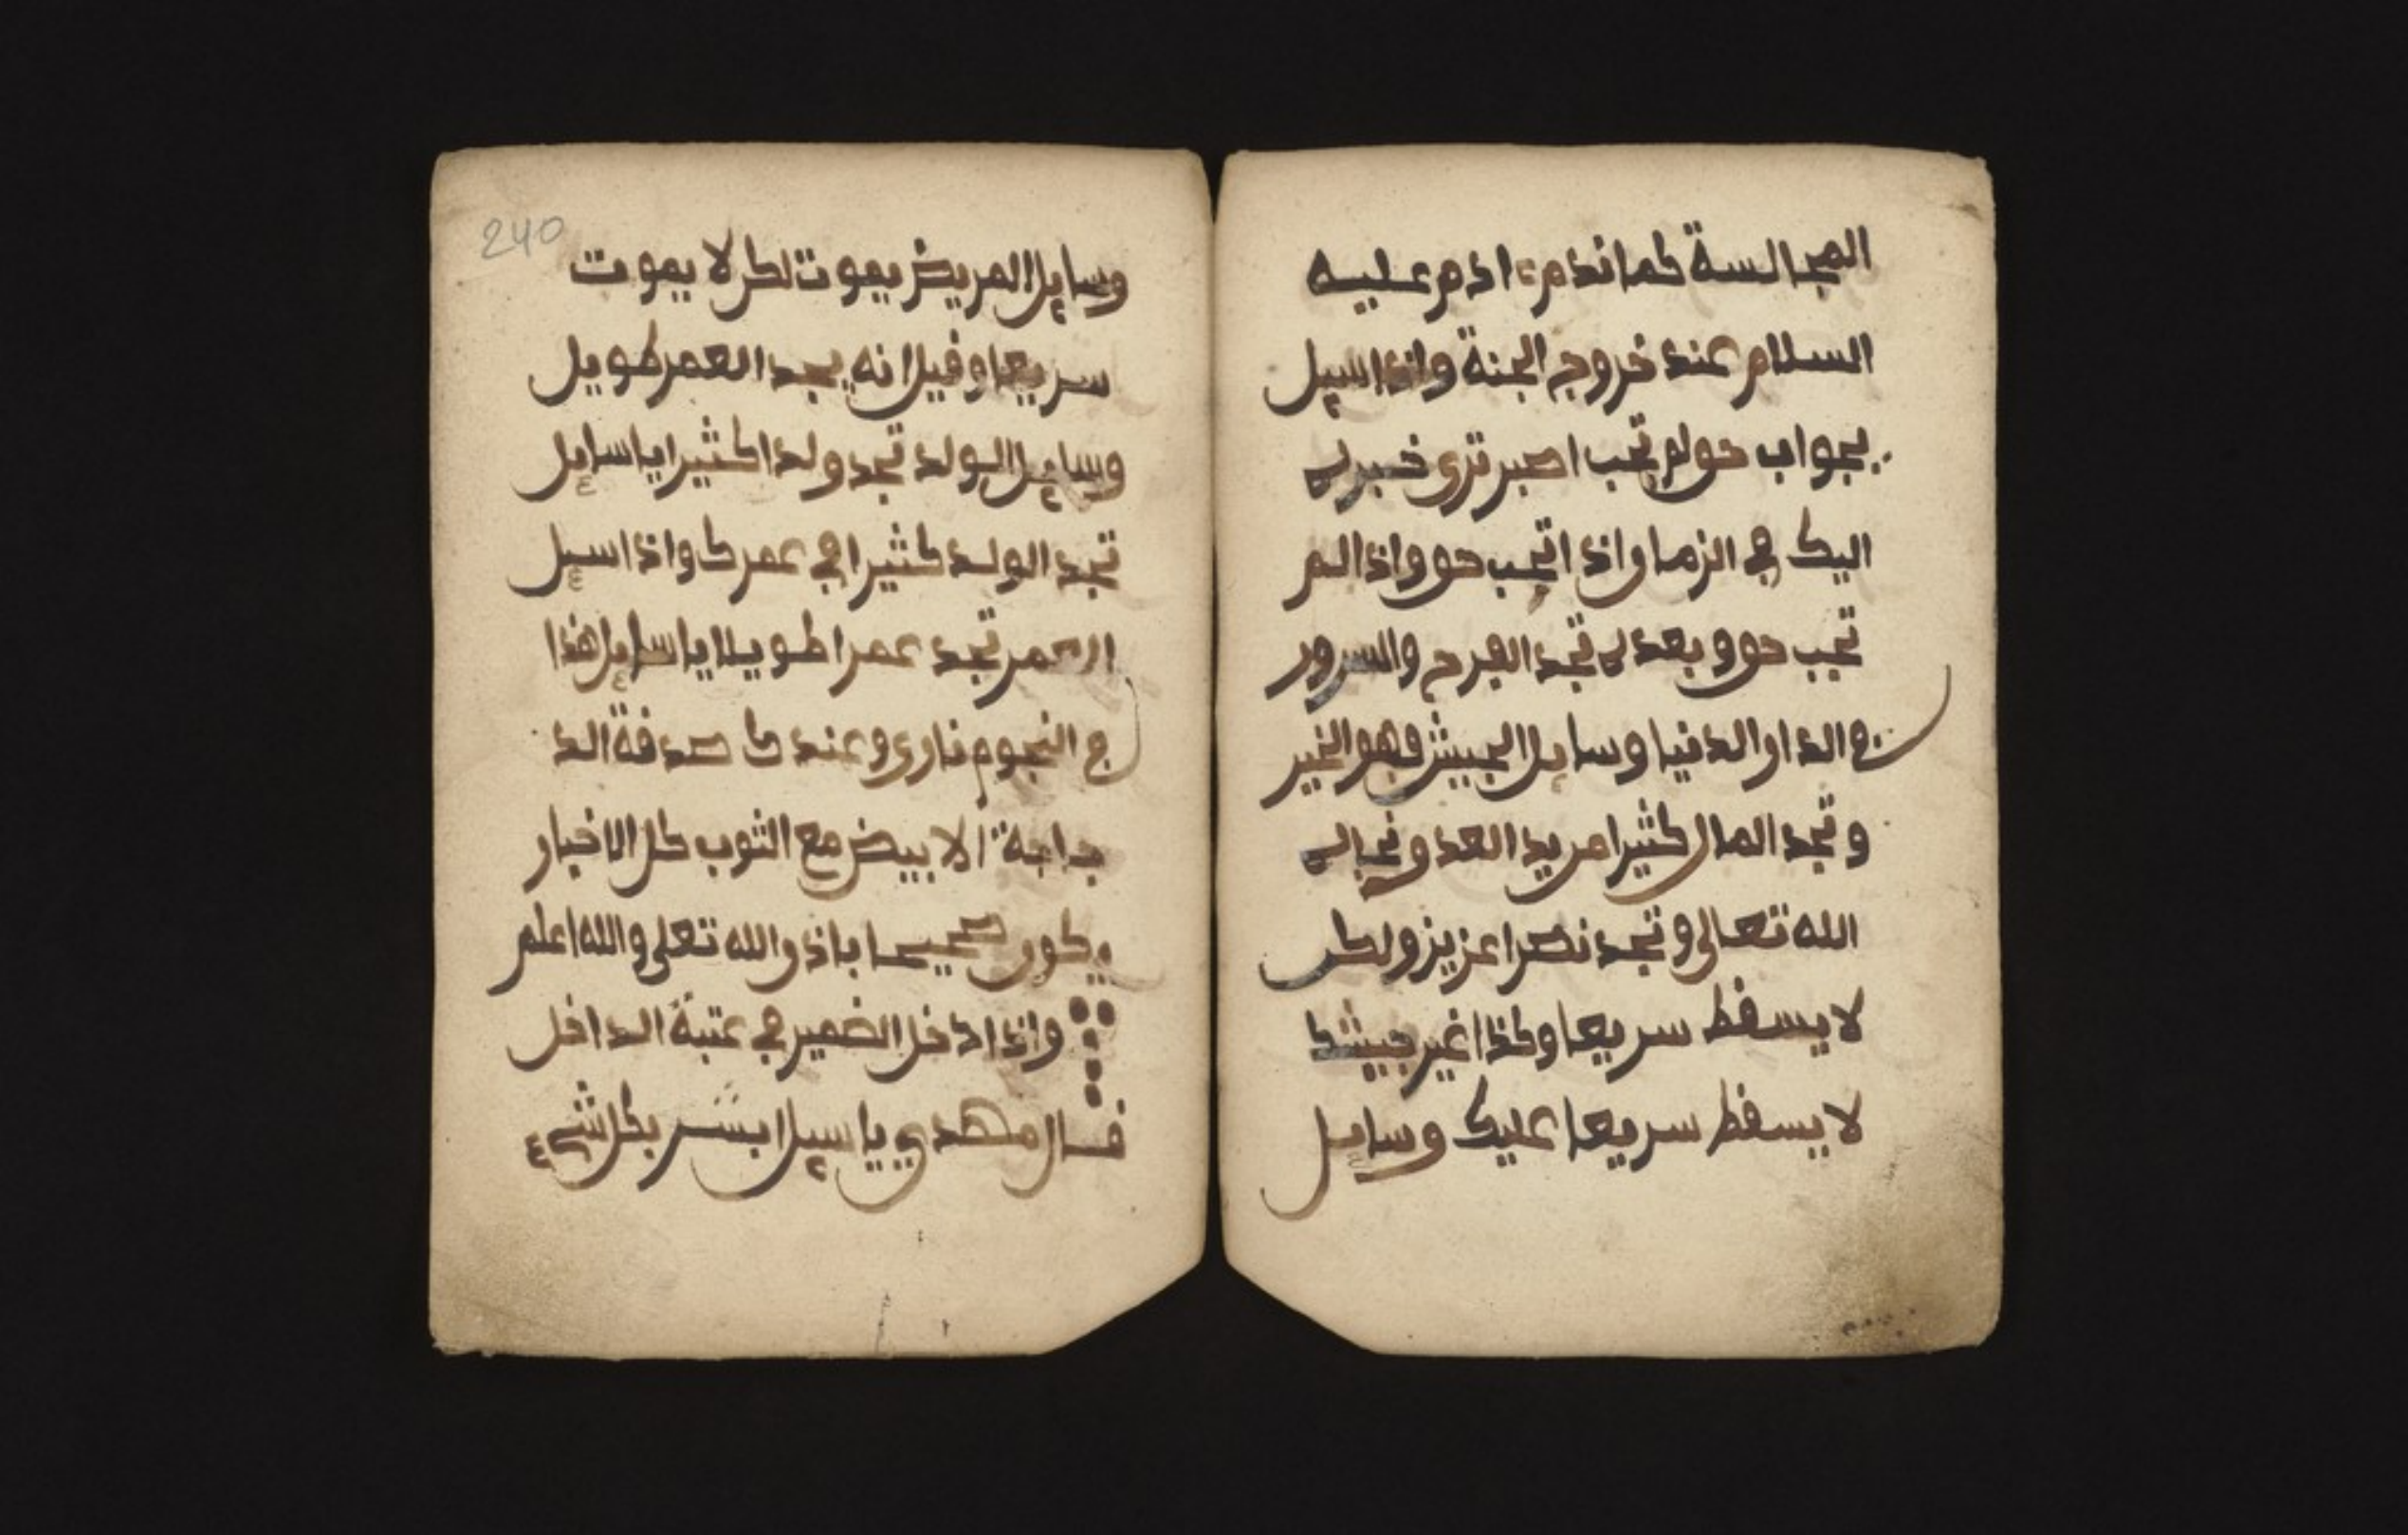 المجالسة كما ندم ءادم عليه
السلام عند خروج الجنة واذا سيل
بجواب خوف تجب اصبر ترى خبرن
اليك في الزمان واذا تجب خوف واذا لم
تجب خوف وبعدن تجد الفرح والسرور
في الدار الدنيا وسايل الجيش فهو الخير
وتجد المال كثيرا من يد العدو نجان
الله تعالى وتجد نصرا عزيز ولكن
لا يسقط سريعا وكذا غير جيشك
لا يسقط سريعا عليك وسايل
240
وسايل المريض يموت لكن لا يموت
سريعا وقيل انه يجد العمر طويل
وسايل الولد تجد ولدا كثيرا يا سايل
تجد الولد كثيرا في عمرك واذا سيل
العمر تجد عمرا طويلا يا سايل هذا
في النجوم ناري وعندك صدقة الد
جاجة الابيض مع الثوب كل الاخبار
يكون صحيحا باذن الله تعلى والله اعلم
واذا دخل الضمير في عتبة الداخل
قال مهدي يا سيل ابشر بكل شيء